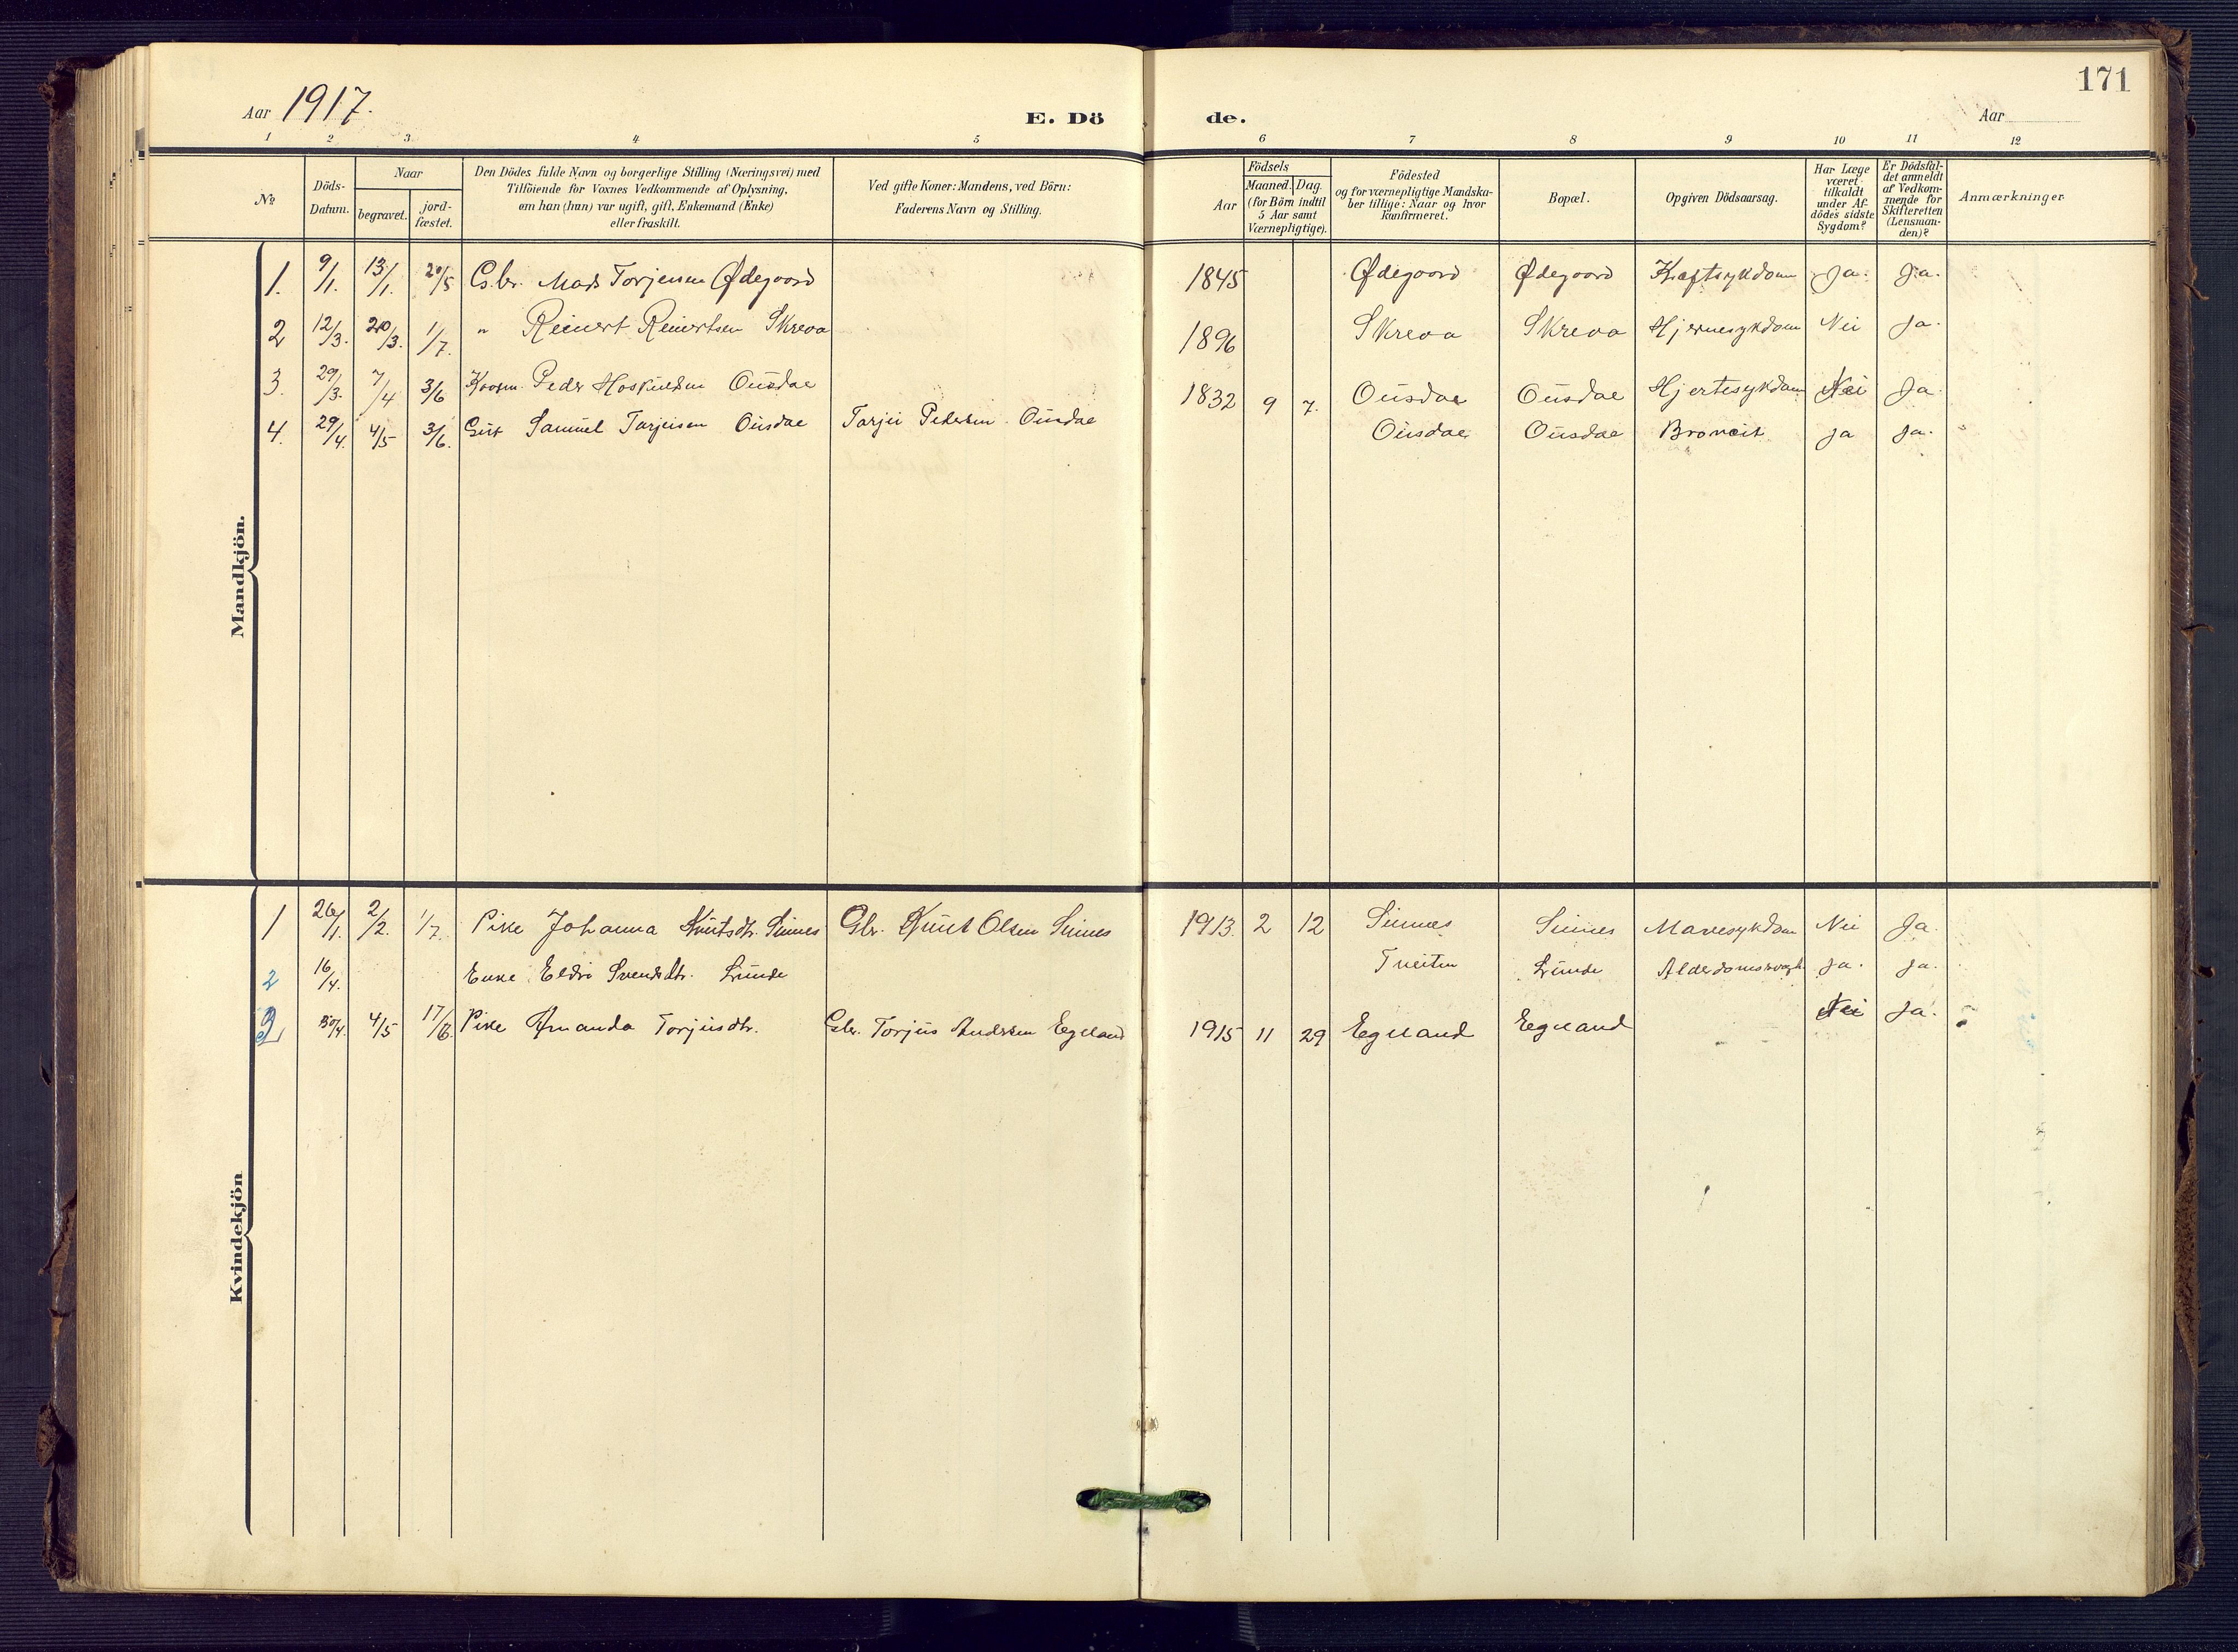 171
Aar 1917.
E. Dö de.
Aar
1 2 3. 4 5 6 7 8 9 10 11 12
№
Döds-Datum.
Naar
begravet.
jord-fæstet.
Den Dödes fulde Navn og borgerlige Stilling (Næringsvei) med
Tilföiende for Voxnes Vedkommende af Oplysning,
om han (hun) var ugift, gift, Enkemand (Enke)
eller fraskilt.
Ved gifte Koner: Mandens, ved Börn:
Faderens Navn og Stilling.
Födsels
Aar
Maaned. Dag.
(for Börn indtil
5 Aar samt
Værnepligtige).
Födested
og for værnepligtige Mandska-
ber tillige: Naar og hvor
konfirmeret.
Bopæl.
Opgiven Dödsaarsag.
Har Læge
været
tilkaldt
under Af-
dödes sidste
Sygdom?
Er Dödsfal-
det anmeldt
af Vedkom-
mende for
Skifteretten
(Lensman-
den)?
Anmærkninger
Mandkjön.
1. 9/1. 13/1. 20/5 Gbr. Mads Torjensen Ødegaard 1845 Ødegaard Ødegaard Kræftsykdom Ja. Ja.
2 12/3. 20/3. 1/7. " Reinert Reinertsen Skreva 1896 Skreva Skreva Hjernesykdom Nei Ja.
3. 29/3. 7/4 3/6 Kaarm. Peder Hoskuldsen Ousdal 1832 9 7. Ousdal Ousdal Hjertesykdom Nei Ja.
4. 29/4. 4/5 3/6. Gut Samuel Tarjeisen Ousdal Tarjei Pedersen Ousdal Ousdal Ousdal Bronkit ja ja.
Kvindekjön
1 26/1. 2/2. 1/7. Pike Johanna Knutsdtr. Sinnes Gbr. Knut Olsen Sinnes 1913. 2 12 Sinnes Sinnes Mavesykdom Nei Ja.
2 16/4. Enke Eldri Svendsdtr. Lunde Tveiten Lunde Alderdomssvagh. ja. ja.
3 30/4. 4/5 17/6. Pike Amanda Torjusdtr. Gbr. Torjus Andersen Egeland 1915 11 29 Egeland Egeland Nei Ja.